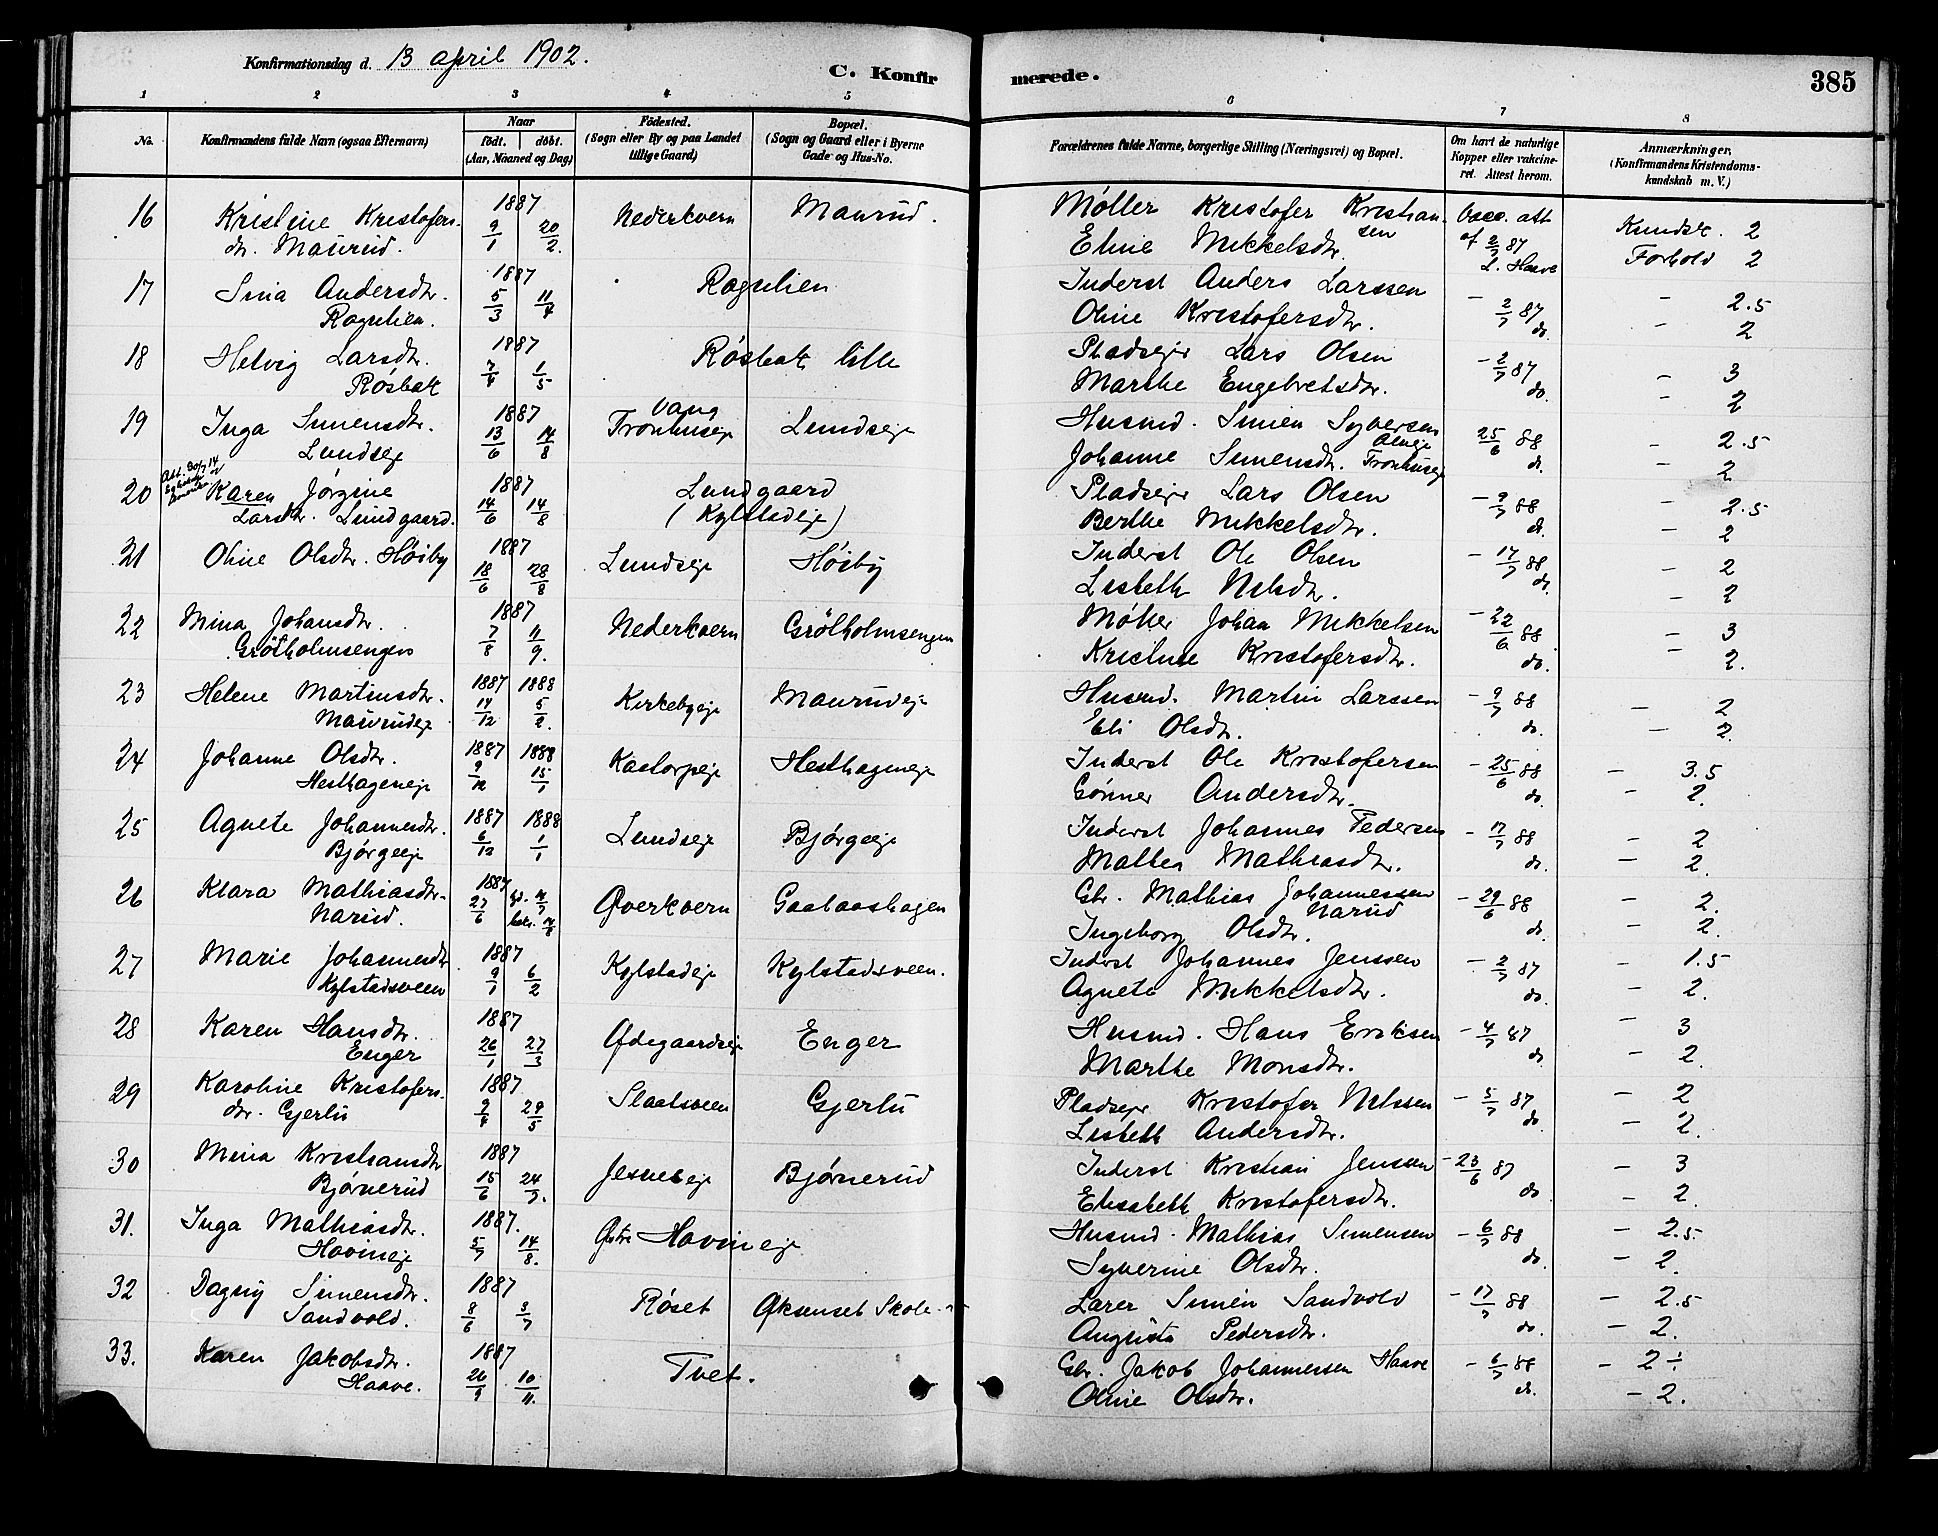 Konfirmationsdag d. 13 april 1902.
C. Konfirmerede.
385
1 2 3 4 5 6 7 8
No.
Konfirmandens fulde Navn (ogsaa Efternavn)
Naar
født. døbt.
(Aar, Maaned og Dag)
Fødested.
(Sogn eller By og paa Landet
tillige Gaard)
Bopæl.
(Sogn og Gaard eller i Byerne
Gade og Hus-No.
Forældrenes fulde Navne, borgerlige Stilling (Næringsvei) og Bopæl.
Om havt de naturlige
Kopper eller vakcine-
ret. Attest herom.
Anmærkninger,
(Konfirmandens Kristendoms-
kundskab m. V.)
16 Kristine Kristofers- 1887 Nederkvern Maurud. Møller Kristofer Kristian- Vacc. att Kundsk. 2
dtr. Maurud. 9/1 20/2. Eline Mikkelsdtr. sen af 2/7 87 Forhold 2
L. Haave
17 Sina Andersdtr. 1887 Rognlien Inderst Anders Larssen - 2/7 87 - 2.5
Rognlien. 5/3 11/4 Oline Kristofersdtr. do. - 2
18 Helvig Larsdtr. 1887 Røsbak lille Pladsejer Lars Olsen - 2/7 87 - 3
Røsbak 7/4 1/5 Marthe Engebretsdtr. do. - 2
19 Inga Simensdtr. 1887 Vang Tronhuseje Lundseje Husmd. Simen Syversen 25/6 88 - 2.5
Lundseje 13/6 14/8 Johanne Simensdtr. Tronhuseje do. - 2
20 Karen Jørgine 1887 Lundgaard Pladsejer Lars Olsen - 9/7 88 - 2.5
Larsdtr. Lundgaard. 14/6 14/8 (Kylstadeje) Berthe Mikkelsdtr. do. - 2
21 Oline Olsdtr. Høiby 1887 Lundseje Høiby Inderst Ole Olsen - 17/7 88 - 2
18/6 28/8 Lisbeth Nilsdtr. do. - 2
22 Mina Johansdtr. 1887 Nederkvern Grøtholmsengen Møller Johan Mikkelsen - 22/6 88 - 3
Grøtholmsengen 7/8 11/9. Kristine Kristofersdtr. do. - 2.
23 Helene Martinsdtr. 1887 1888 Kirkebyeje Maurudeje Husmd. Martin Larssen - 9/7 88 - 2
Maurudeje 14/12 5/2. Eli Olsdtr. do. - 2
24 Johanne Olsdtr. 1887 1888 Kastorpeje Hesthageneje Inderst Ole Kristofersen - 25/6 88 - 3.5
Hesthageneje 9/12 15/1 Gønner Andersdtr. do. - 2.
25 Agnete Johannesdtr. 1887 1888 Lundseje Bjørgeeje Inderst Johannes Pedersen - 17/7 88 - 2
Bjørgeeje 6/12 1/1 Malthea Mathiasdtr. do. - 2.
26 Klara Mathiasdtr. 1887 Øverkvern Gaalaashagen Gbr. Mathias Johannessen - 29/6 88 - 2.
Narud. 27/6 Narud
Ingeborg Olsdtr. do. - 2.
27 Marie Johannesdtr 1887 Kylstadeje Kylstadsveen. Inderst Johannes Jenssen - 2/7 87 - 1.5
Kylstadsveen 9/1 6/2 Agnete Mikkelsdtr. do. - 2.
28 Karen Hansdtr. 1887 Ødegaardseje Enger Husmd. Hans Eriksen - 4/7 87 - 3
Enger 26/1 27/3 Marthe Monsdtr. do - 2.
29 Karoline Kristofers- 1887 Slaatsveen Gjerlu Pladsejer Kristofer Nilssen - 5/7 87 - 2
dtr. Gjerlu 9/4 29/5 Lisbeth Andersdtr. do. - 2.
30 Mina Kristiansdtr 1887 Jesneseje Bjørnerud Inderst Kristian Jenssen - 23/6 87 - 3
Bjørnerud 15/6 24/7. Elisabeth Kristofersdtr. do - 2.
31. Inga Mathiasdtr. 1887. Østre Hovineje Husmd. Mathias Simensen - 6/7 88 - 2.5
Hovineje 5/7 14/8. Syverine Olsdtr. do. - 2.
32 Dagny Simensdtr. 1887 Røset Øksenset Skole Lærer Simen Sandvold - 17/7 88 - 2.5
Sandvold. 8/6 3/7 Augusta Pedersdtr. do. - 2.
33. Karen Jakobsdtr. 1887 Tvet. Gbr. Jakob Johannessen Haave - 6/7 88 - 2 ÷
Haave. 26/9 10/11. Oline Olsdtr. do. - 2.